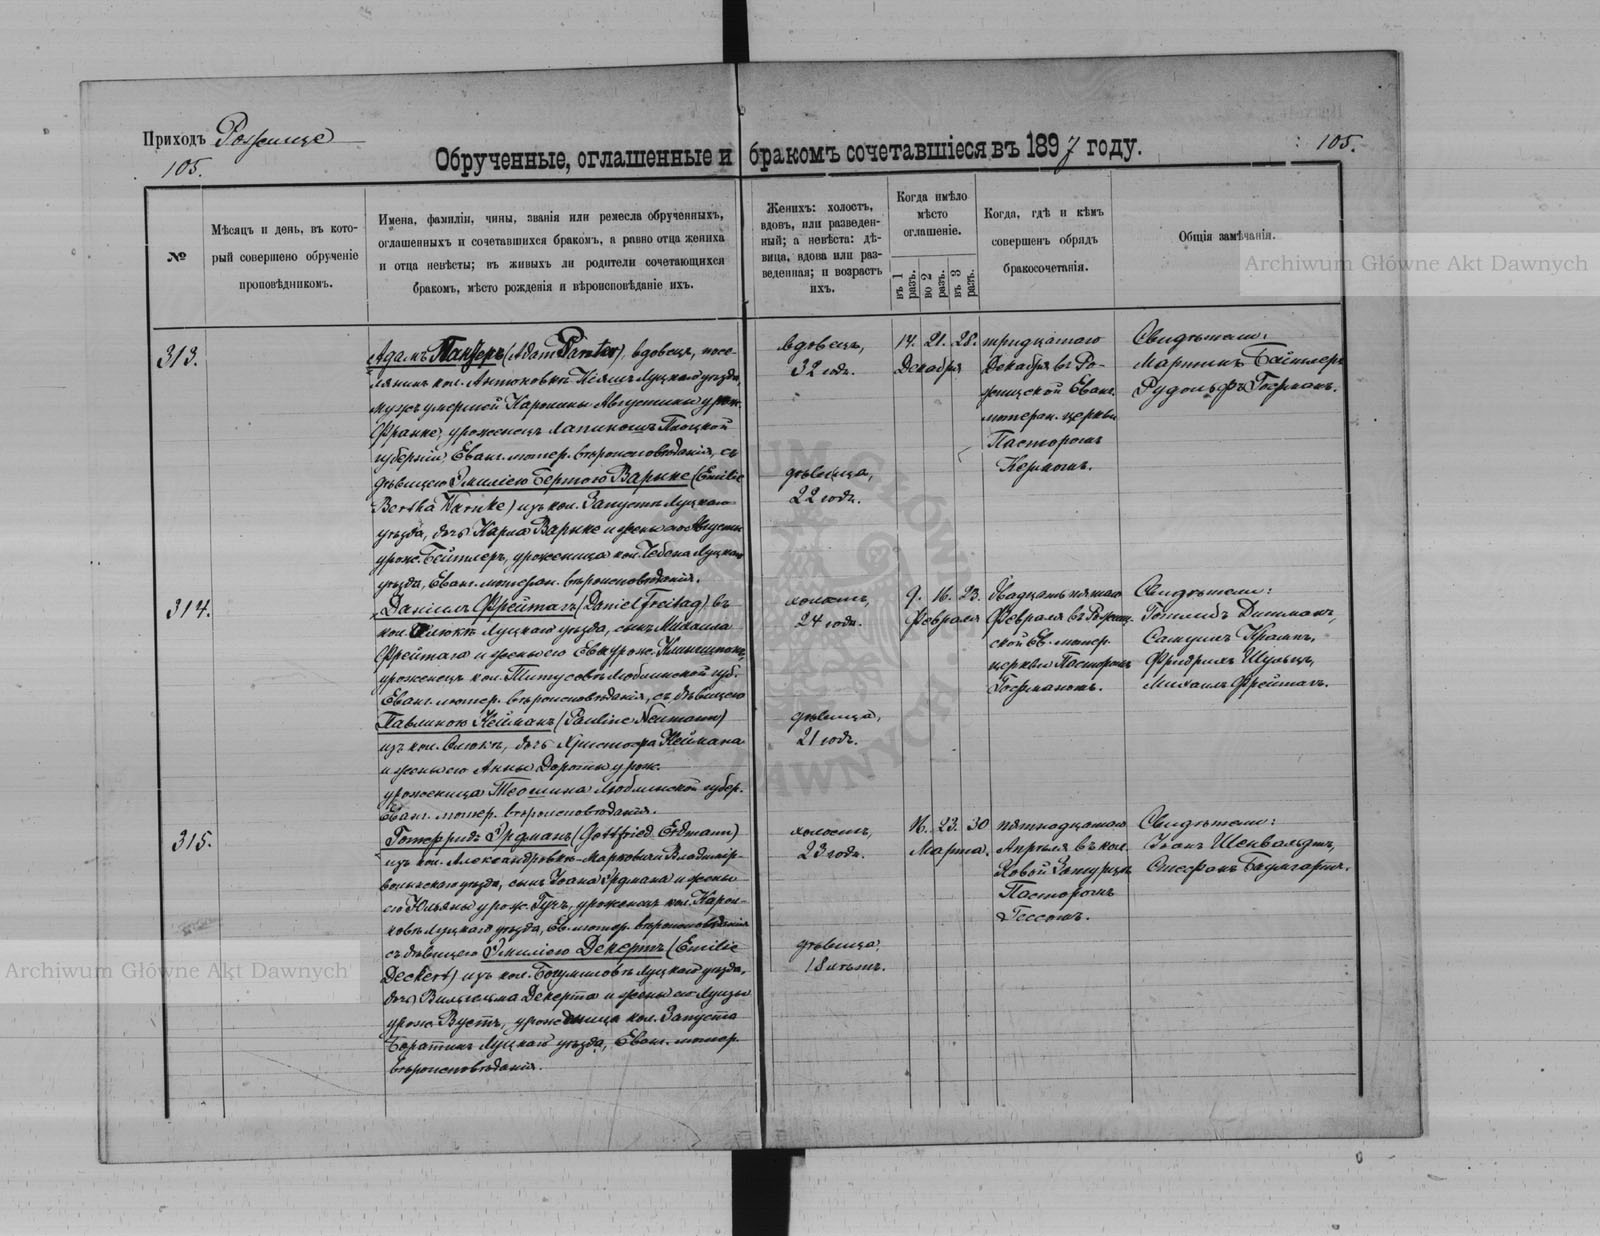 Приходъ Рожище
105.
Обрученные, оглашенные и бракомъ сочетавшіеся въ 1897 году.
105.
№
Мѣсяцъ и день, въ кото-
рый совершено обрученіе
проповѣдникомъ.
Имена, фамиліи, чины, званія или ремесла обрученныхъ,
оглашенныхъ и сочетавшихся бракомъ, а равно отца жениха
и отца невѣсты; въ живыхъ ли родители сочетающихся
бракомъ, мѣсто рожденія и вѣроисповѣданіе ихъ.
Женихъ: холостъ,
вдовъ, или разведен-
ный; а невѣста: дѣ-
вица, вдова или раз-
веденная; и возрастъ
ихъ.
Когда имѣло
мѣсто
оглашеніе.
въ 1
разъ.
во 2
разъ.
въ 3
разъ.
Когда, гдѣ и кѣмъ
совершенъ обрядъ
бракосочетанія.
Общія замѣчанія.
Archiwum Główne Akt Dawnych
313.
Адамъ Панзеръ (Adam), вдовецъ, посе-
лянинъ кол. Антоновкѣ Луцкаго уѣзда,
мужъ умершей Каролины Августины урож.
Франке, уроженецъ Плоцкой
губерніи, Еванг. лютер. вѣроисповѣданія, съ
дѣвицею Эмиліею Бертою Варнке (Emilie
Bertha Warnke) изъ кол. Запустъ Луцкаго
уѣзда, дочь Карла Варнке и жены его Августы
урож. Бейтлеръ, уроженица кол. Луцкаго
уѣзда, Еванг. лютеран. вѣроисповѣданія.
вдовецъ,
32 годъ.
дѣвица,
22 годъ.
14. 21. 28.
Декабря
тридцатаго
Декабря въ Ро-
жищской Еванг.
лютеран. церкви
Пасторомъ
Кермомъ.
Свидѣтели:
Мартинъ Бейтлеръ
Рудольфъ Гофманъ.
314.
Даніилъ Фрейтагъ (Daniel Freitag) въ
кол. Олюкѣ Луцкаго уѣзда, сынъ Михаила
Фрейтага и жены его Евы урож.
уроженецъ кол. Титусовъ Люблинской губ.
Еванг. лютер. вѣроисповѣданія, съ дѣвицею
Павлиною Нейманъ (Pauline Neumann)
изъ кол. Олюкъ, дочь Христофа Неймана
и жены его Анны Дороты урож.
уроженица Люблинской губер.
Еванг. лютер. вѣроисповѣданія.
холостъ,
24 годъ.
дѣвица,
21 годъ.
9. 16. 23.
Февраля
Двадцать пятаго
Февраля въ Рожищ-
ской Ев. лютер.
церкви Пасторомъ
Гофманомъ.
Свидѣтели:
Готлибъ Дитманъ,
Самуилъ Крампъ,
Фридрихъ Шульцъ,
Михаилъ Фрейтагъ.
315.
Готфридъ Эрдманъ (Gottfried Erdmann)
изъ кол. Александровкѣ-Марковичи Владимір-
волынскаго уѣзда, сынъ Іоана Эрдмана и жены
его Юльяны урож. Гухъ, уроженецъ кол. Карол-
новъ Луцкаго уѣзда, Ев. лютер. вѣроисповѣданія
съ дѣвицею Эмиліею Декертъ (Emilie
Deckert) изъ кол. Богумиловъ Луцкаго уѣзда,
дочь Вильгельма Декерта и жены его Луизы
урож. Вустъ, уроженица кол. Запуста
Баратинъ Луцкаго уѣзда, Еванг. лютер.
вѣроисповѣданія.
холостъ,
23 годъ.
дѣвица,
18 лѣтъ.
16. 23. 30
Марта.
пятнадцатаго
Апрѣля въ кол.
Новой Затурцы
Пасторомъ
Гессомъ.
Свидѣтели:
Іоанъ Шенвальдтъ,
Стефанъ Баумгартъ.
Archiwum Główne Akt Dawnych